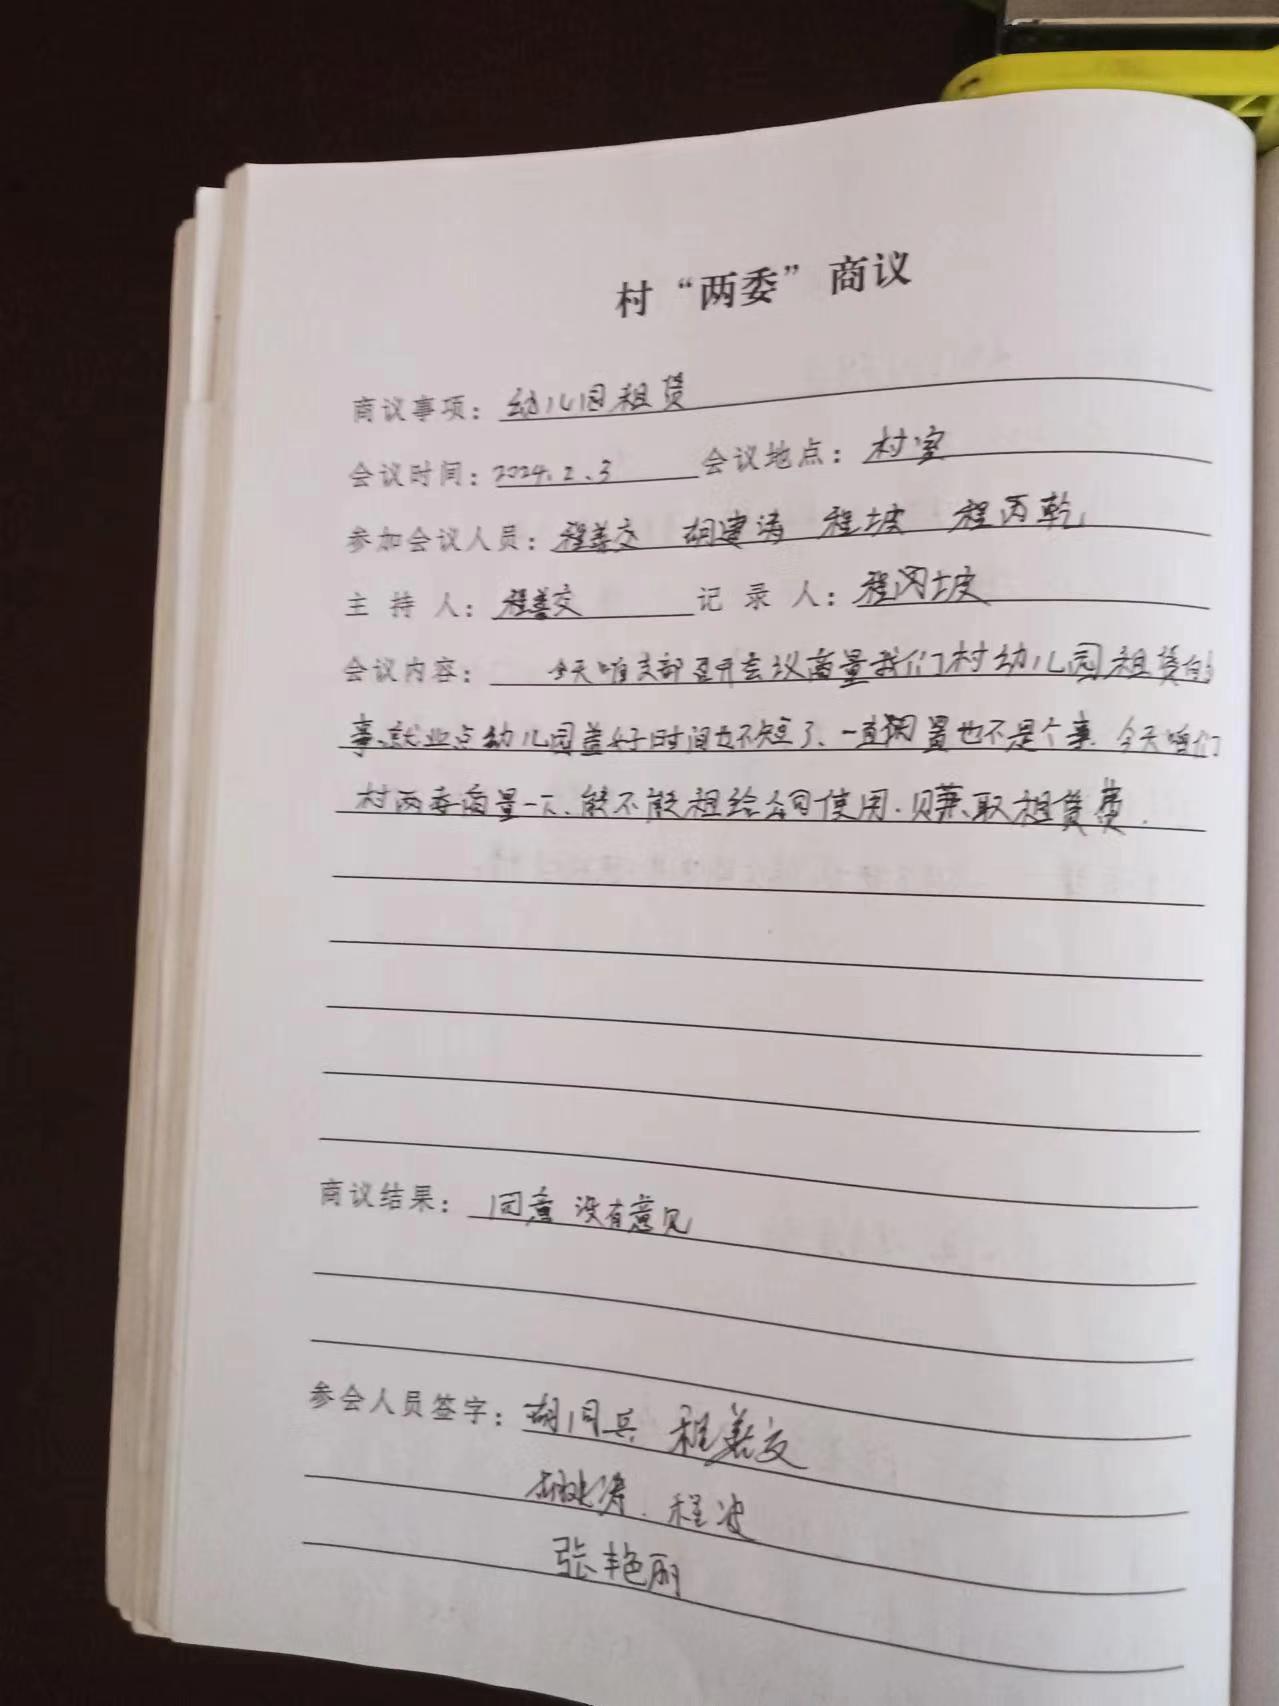 村“两委”商议
商议事项：幼儿园租赁
会议时间：2024.2.3 会议地点：村室
参加会议人员：程善交 胡建涛 程坡 程丙乾
主持人：程善交 记录人：程丙坡
会议内容：今天咱支部召开会议商量我们村幼儿园租赁的
事、就业点幼儿园盖好时间也不短了、一直闲置也不是个事. 今天咱们
村两委商量一下、能不能租给公司使用.赚取租赁费.
商议结果：同意 没有意见
参会人员签字：胡同兵 程善交
程波
张艳丽